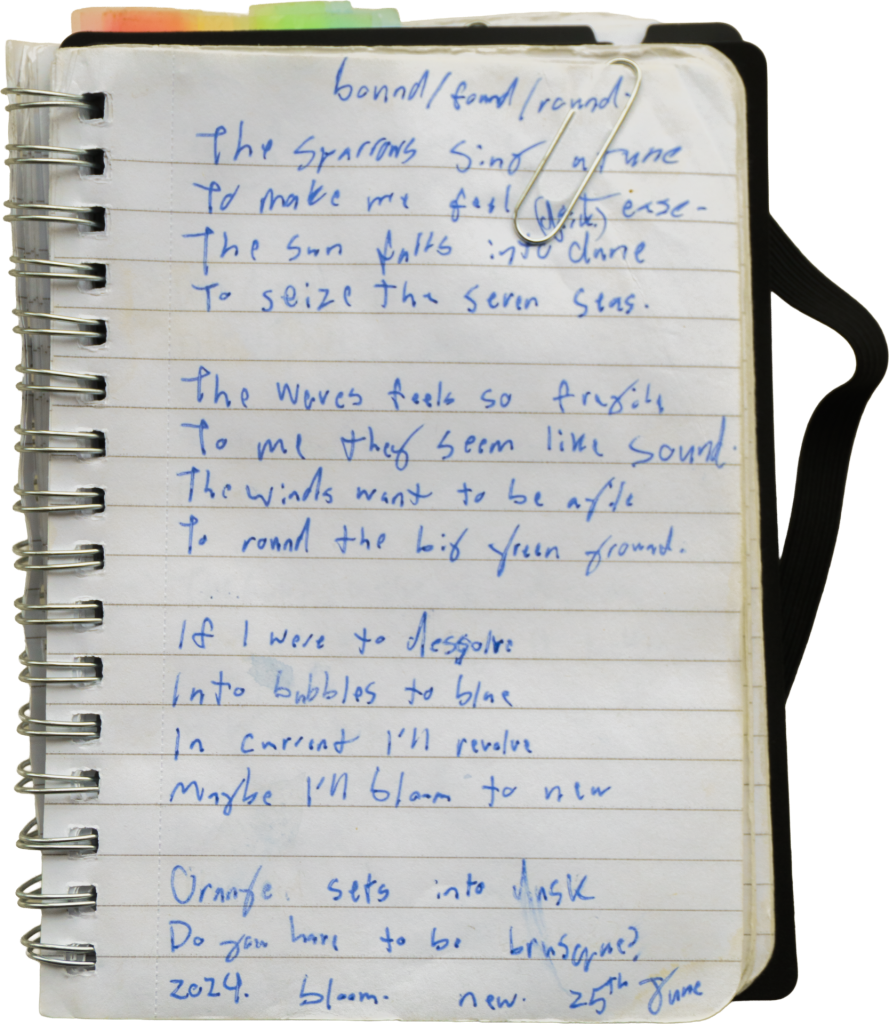 bound/found/round.
The sparrows sing a tune
To make me feel at ease-
The sun falls into dune
To seize the seven seas.
The waves feels so fragile
To me they seem like sound.
The winds want to be agile
To round the big green ground.
If I were to dessolve
Into bubbles to blue
In current I'll revolve
Maybe I'll bloom to new
Orange sets into dusk
Do you have to be brusque?
2024. bloom. new. 25th June